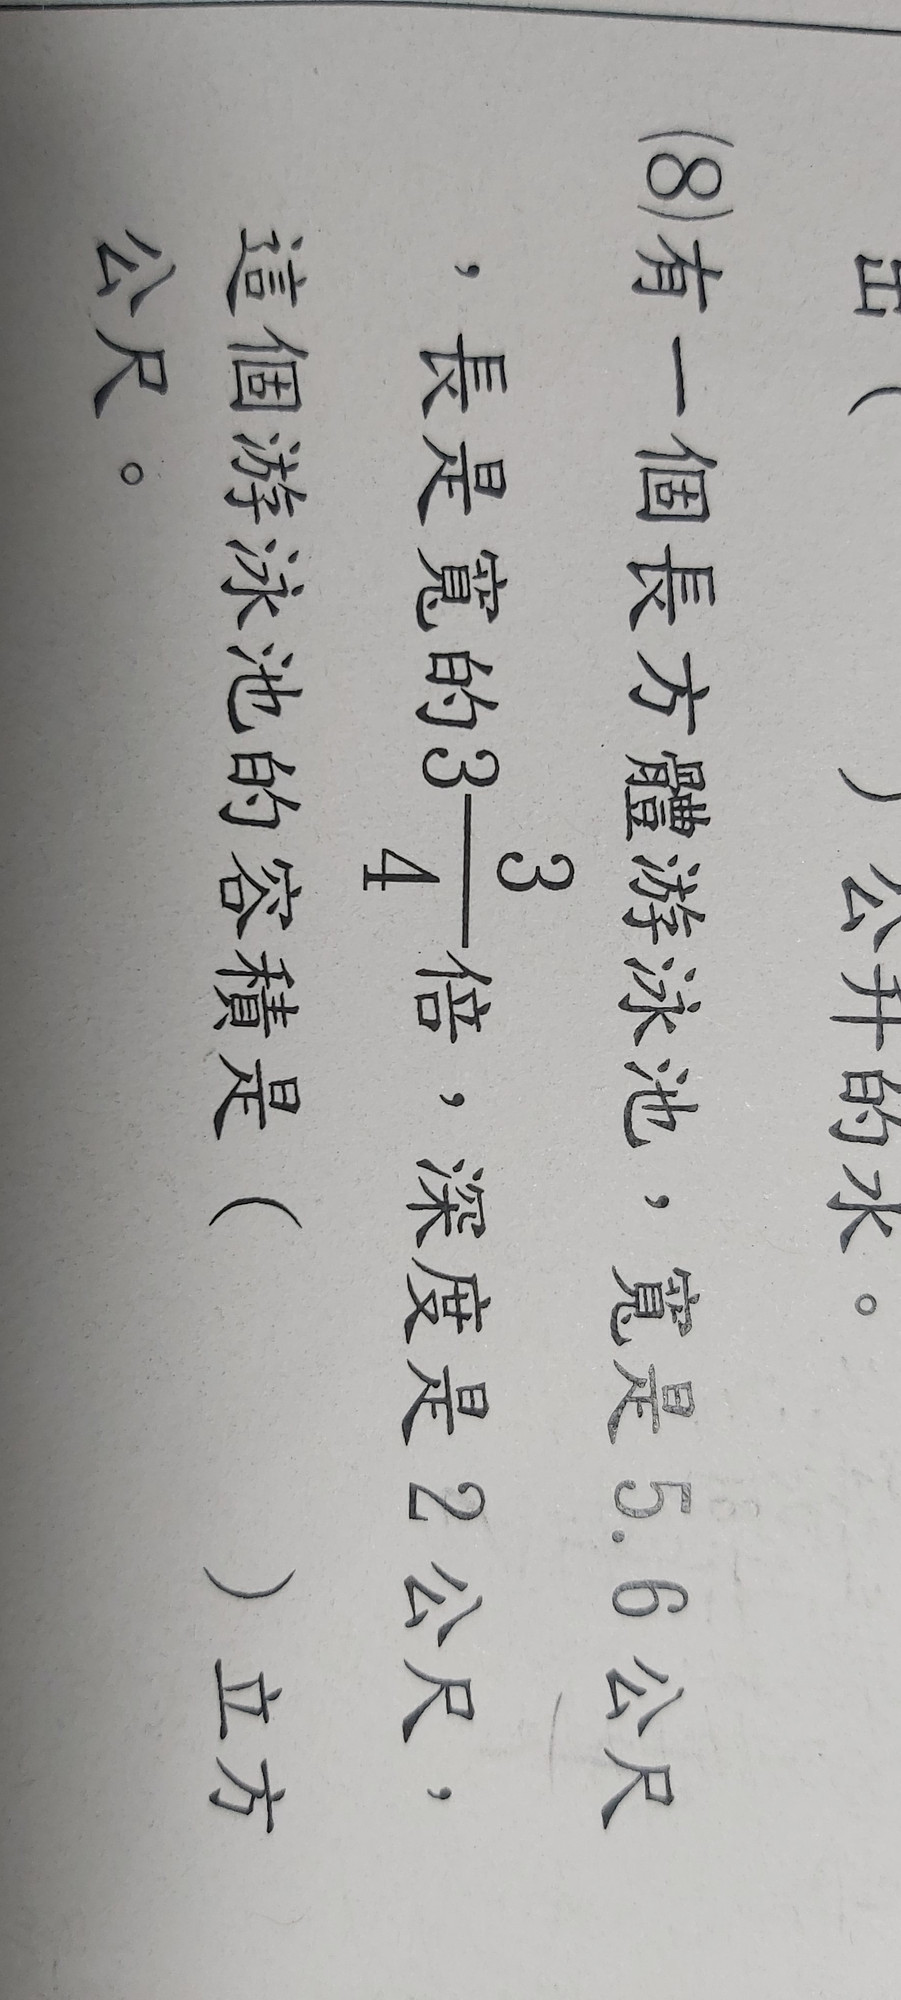 出（　　　）公升的水。
(8)有一個長方體游泳池，寬是5.6公尺
，長是寬的3 3/4倍，深度是2公尺，
這個游泳池的容積是（　　　）立方
公尺。